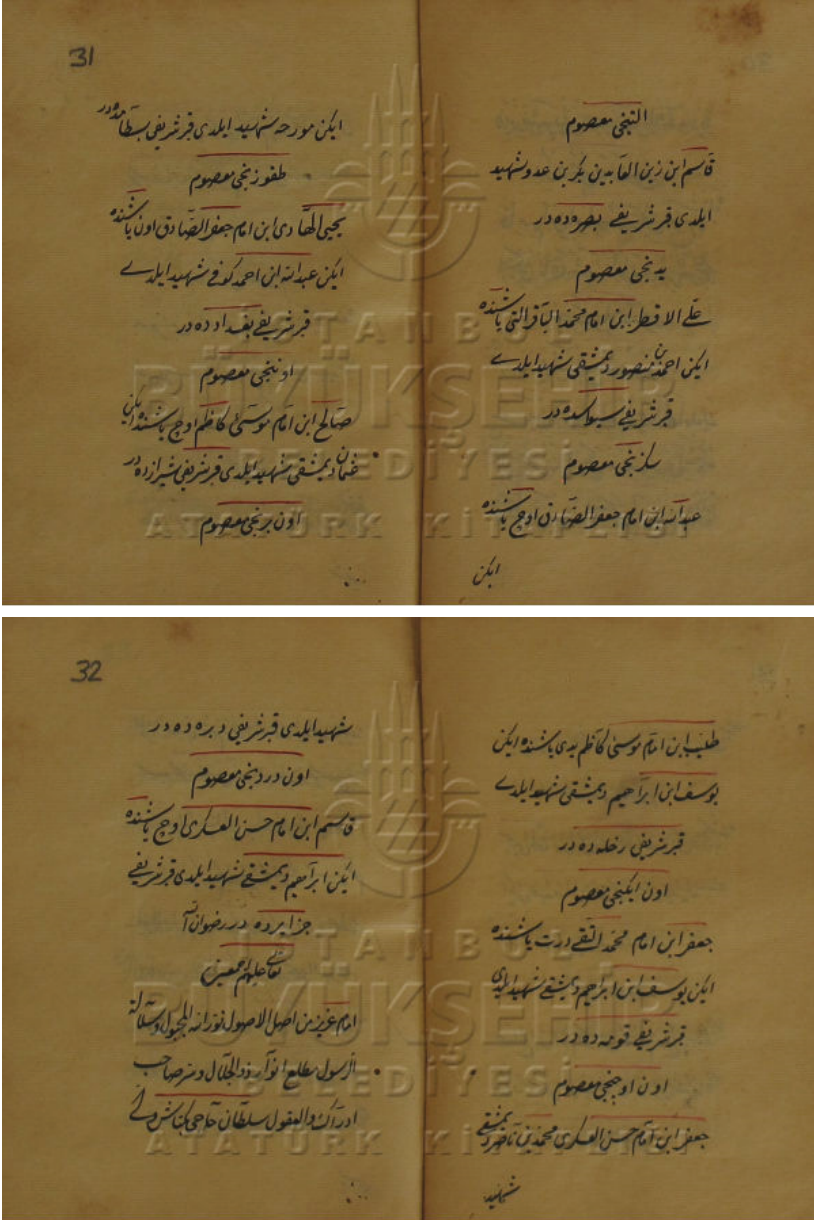 التنجی معصوم
قاسم ابن زین العابدین بكر بن عدو شهید
ایلدی قبر شریفی بصره ده در
یدنجی معصوم
علی الافطر ابن امام محمد الباقر التی یاشنده
ایكن احمد بن منصور دیمشقی شهید ایلدی
قبر شریفی سیواسده در
سكزنجی معصوم
عبد الله ابن امام جعفر الصادق اوچ یاشنده
ایكن
31
ایكن شهید ایلدی قبر شریفی بسطامده در
طقوزنجی معصوم
یحیی الهادی ابن امام جعفر الصادق اون یاشنده
ایكن عبد الله ابن احمد كوفی شهید ایلدی
قبر شریفی بغداد ده در
اوننجی معصوم
صالح ابن امام موسی كاظم اوچ یاشنده ایكن
عثمان دیمشقی شهید ایلدی قبر شریفی شیرازده در
اون برنجی معصوم
طیب ابن امام موسی كاظم یدی یاشنده ایكن
یوسف ابن ابراهیم دیمشقی شهید ایلدی
قبر شریفی ده در
اون ایكنجی معصوم
جعفر ابن امام محمد التقی درت یاشنده
ایكن یوسف ابن ابراهیم دیمشقی شهید ایلدی
قبر شریفی قومده در
اون اوچنجی معصوم
جعفر ابن امام حسن العسكری محمد بن ناصر دیمشقی
شهید
32
شهید ایلدی قبر شریفی ده در
اون دردنجی معصوم
قاسم ابن امام حسن العسكری اوچ یاشنده
ایكن ابراهیم دیمشقی شهید ایلدی قبر شریفی
جزایرده در رضوان الله
تعالی علیهم اجمعین
امام عزیز من اصل الاصول نور الله
الرسول مطلع انوار ذو الجلال و سر صاحب
ادراك والعقول سلطان حاجی بكتاش ولی
İSTANBUL
BÜYÜKŞEHİR
BELEDİYESİ
ATATÜRK KİTAPLIĞI
İSTANBUL
BÜYÜKŞEHİR
BELEDİYESİ
ATATÜRK KİTAPLIĞI